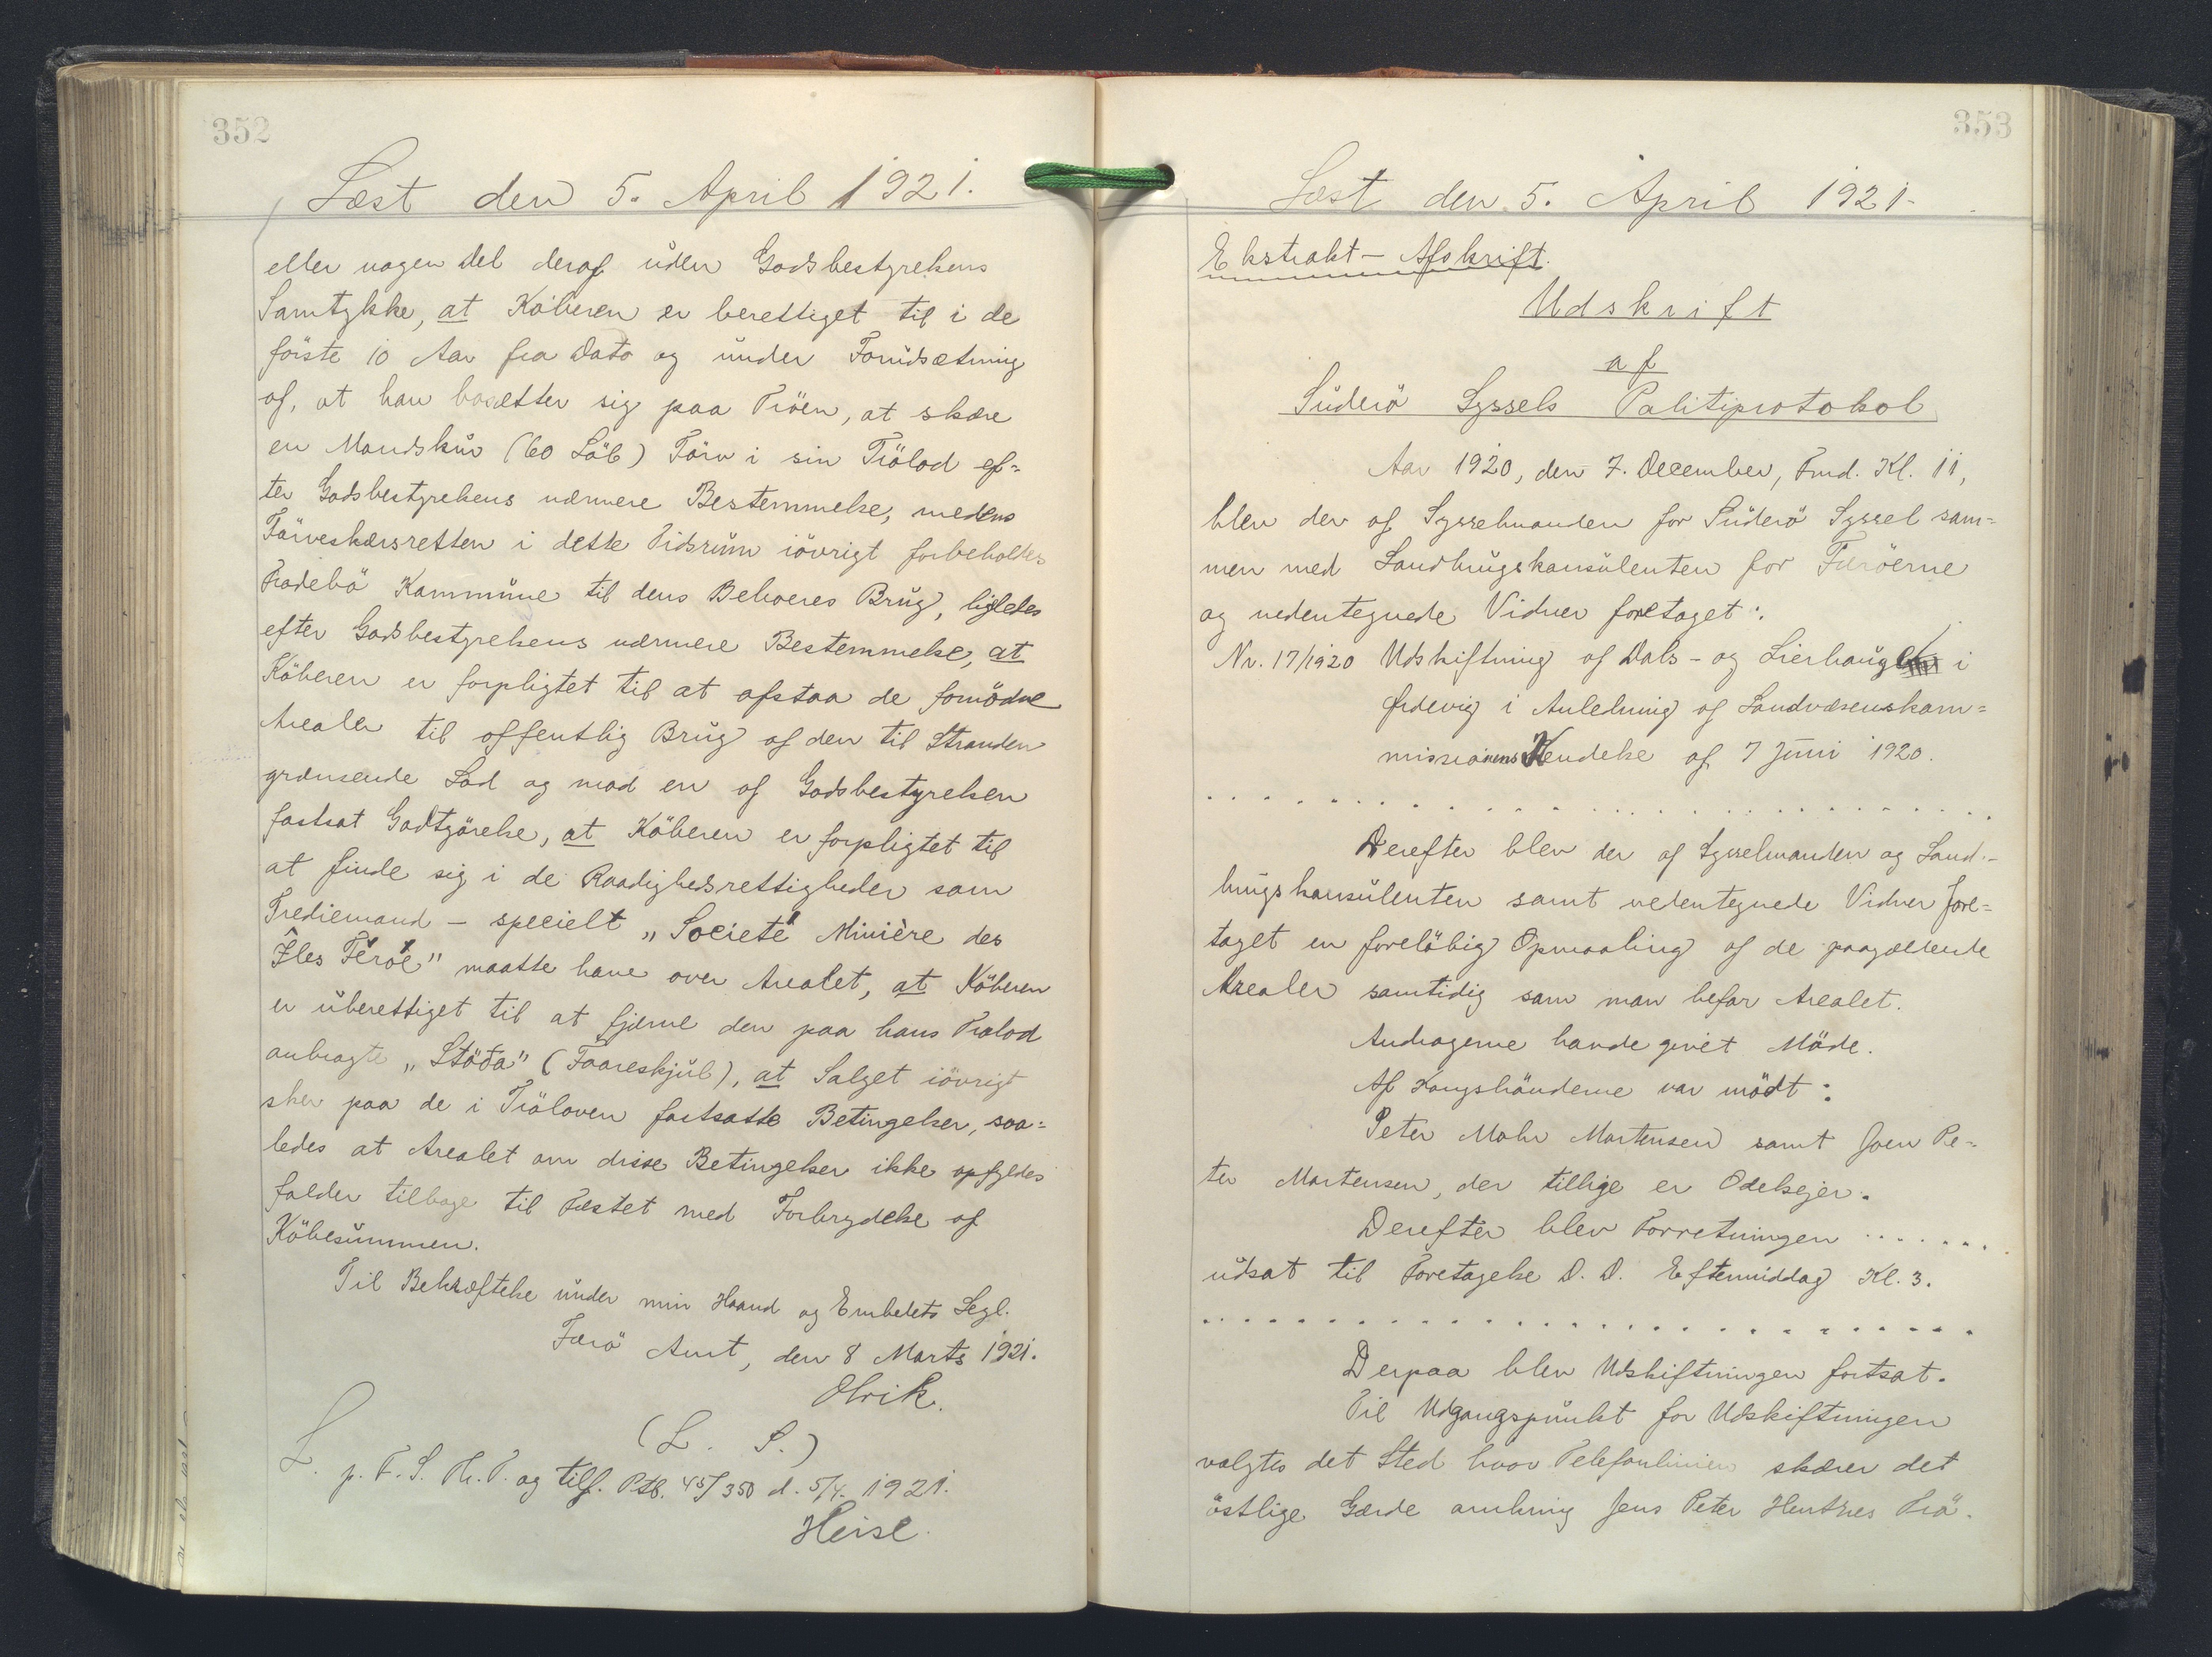 352
Læst den 5. April 1921.
eller nogen Del deraf uden Godsbestyrelsens
Samtykke, at Köberen er berettiget til i de
förste 10 Aar fra Dato og under Forudsætning
af, at han bosætter sig paa Tröen, at skære
en Mandskur (60 Löb) Törv i sin Trölod ef=
ter Godsbestyrelsens nærmere Bestemmelse, medens
Törveskærsretten i dette Tidsrum iövrigt forbeholdes
Frodebö Kommune til dens Beboeres Brug, ligeledes
efter Godsbestyrelsens nærmere Bestemmelse, at
Köberen er forpligtet til at afstaa de fornödne
Arealer til offentlig Brug af den til Stranden
grænsende Lod og mod en af Godsbestyrelsen
fastsat Godtgörelse, at Köberen er forpligtet til
at finde sig i de Raadighedsrettigheder som
Trediemand - specielt „Societé Minière des
Îles Féroé" maatte have over Arealet, at Köberen
er uberettiget til at fjerne den paa hans Trölod
anbragte „Stöða" (Faareskjul), at Salget iövrigt
sker paa de i Tröloven fastsatte Betingelser, saa=
ledes at Arealet om disse Betingelser ikke opfyldes
falder tilbage til Fæstet med Forbrydelse af
Köbesummen.
Til Bekræftelse under min Haand og Embedets Segl.
Færö Amt, den 8 Marts 1921.
Olrik.
(L. S.)
L. p. F. S. Th. P. og tilf. Ptb. 45/350 d. 5/4. 1921.
Heise.
353
Læst den 5. April 1921.
Ekstrakt - Afskrift.
Udskrift
af
Suderö Syssels Politiprotokol
Aar 1920, den 7. December, Fmd. Kl. 11,
blev der af Sysselmanden for Suderö Syssel sam=
men med Landbrugskonsulenten for Færöerne
og nedentegnede Vidner foretaget:
Nr. 17/1920 Udskiftning af Dals- og Lierhauget i
Ørdevig i Anledning af Landvæsenskom=
missionens Kendelse af 7 Juni 1920.
. . . . . . . . . . . . . . . . . . . . . .
Derefter blev der af Sysselmanden og Land-
brugskonsulenten samt nedentegnede Vidner fore=
taget en foreløbig Opmaaling af de paagældende
Arealer samtidig som man befor Arealet.
Andragerne havde givet Möde.
Af Kongsbönderne var mödt:
Peter Mohr Mortensen samt Joen Pe-
ter Mortensen, der tillige er Odelsejer.
Derefter blev Forretningen ........
udsat til Foretagelse D. D. Eftermiddag Kl. 3.
. . . . . . . . . . . . . . . . . . . . . .
Derpaa blev Udskiftningen fortsat.
Til Udgangspunkt for Udskiftningen
valgtes det Sted hvor Telefonlinien skærer det
östlige Gærde omkring Jens Peter Hentzes Trö.